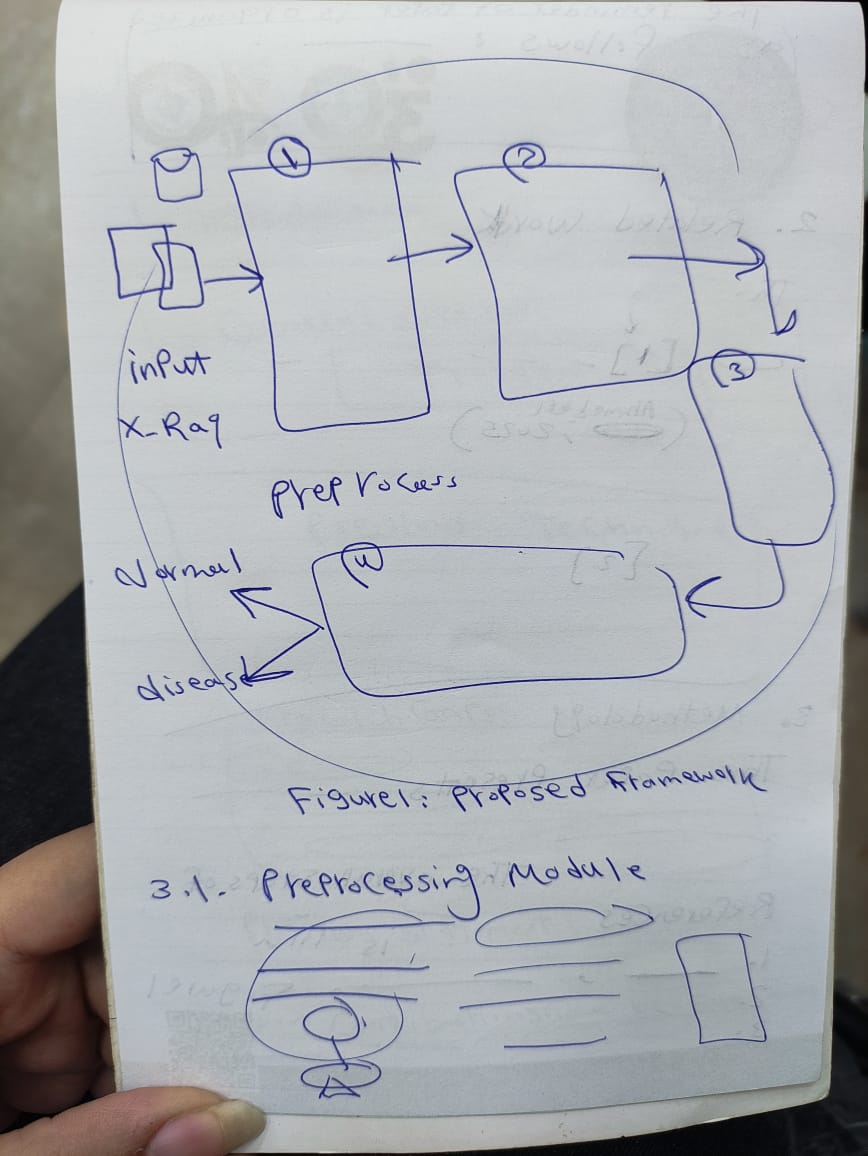 1
2
3
input
X-Ray
preprocess
4
Normal
disease
Figure1: Proposed Framework
3.1. Preprocessing Module